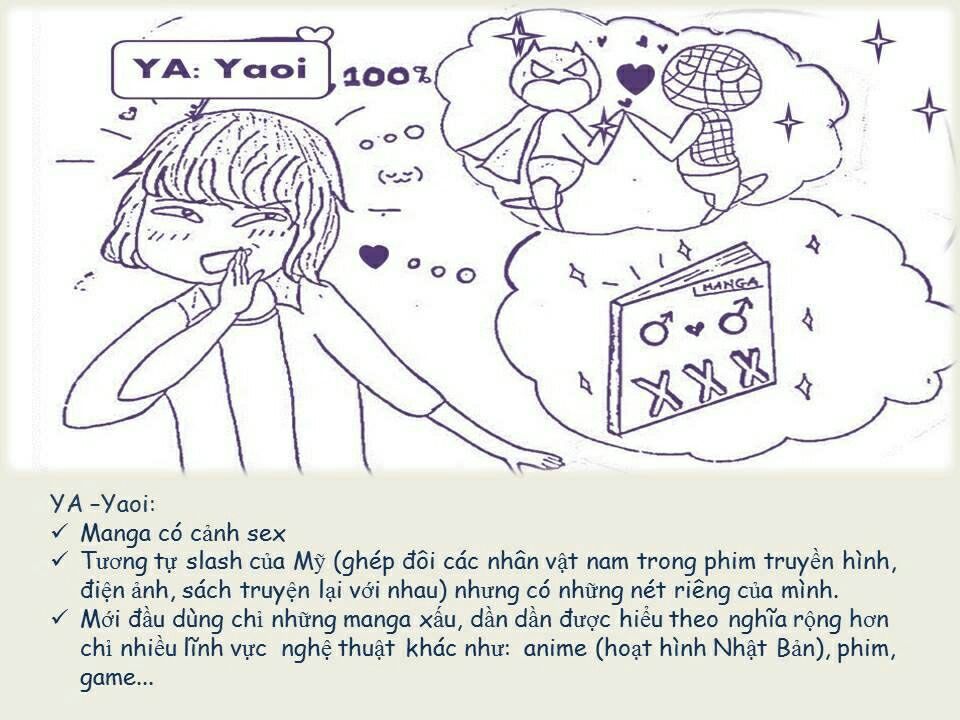 YA: Yaoi
100%
MANGA
XXX
YA –Yaoi:
✓ Manga có cảnh sex
✓ Tương tự slash của Mỹ (ghép đôi các nhân vật nam trong phim truyền hình,
điện ảnh, sách truyện lại với nhau) nhưng có những nét riêng của mình.
✓ Mới đầu dùng chỉ những manga xấu, dần dần được hiểu theo nghĩa rộng hơn
chỉ nhiều lĩnh vực nghệ thuật khác như: anime (hoạt hình Nhật Bản), phim,
game...